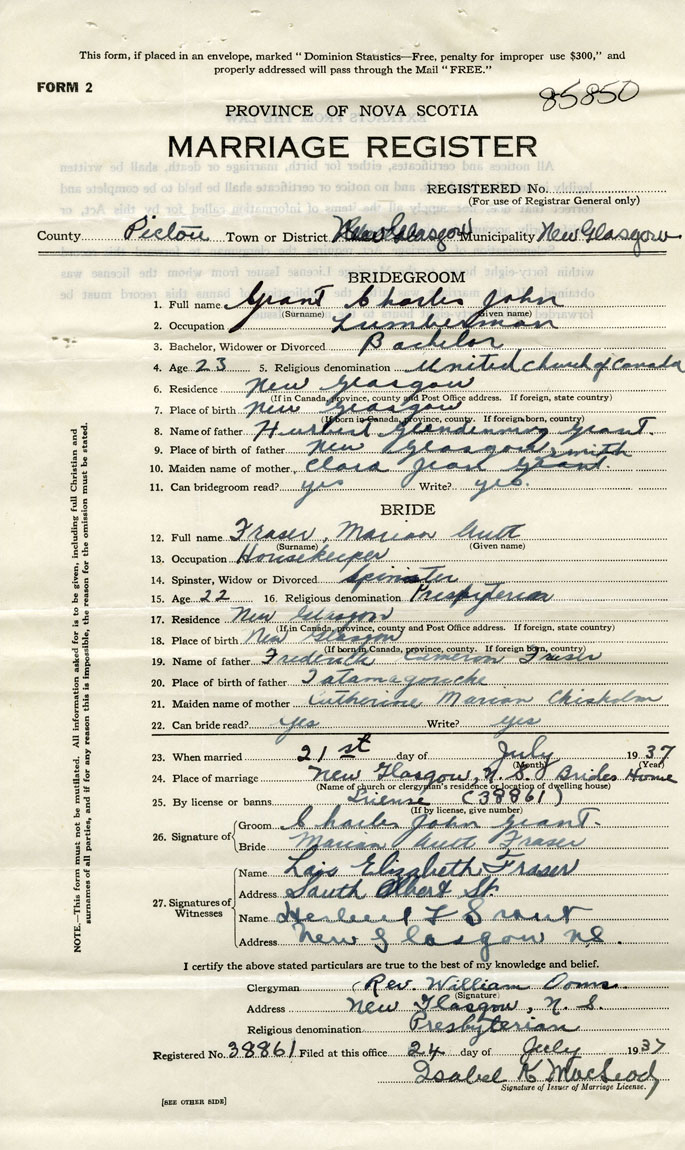 This form, if placed in an envelope, marked "Dominion Statistics—Free, penalty for improper use $300," and
properly addressed will pass through the Mail "FREE."
FORM 2
85850
PROVINCE OF NOVA SCOTIA
MARRIAGE REGISTER
REGISTERED No.
(For use of Registrar General only)
County Pictou Town or District New Glasgow Municipality New Glasgow
BRIDEGROOM
1. Full name Grant Charles John
(Surname) (Given name)
2. Occupation Lumberman
3. Bachelor, Widower or Divorced Bachelor
4. Age 23 5. Religious denomination United Church of Canada
6. Residence New Glasgow
(If in Canada, province, county and Post Office address. If foreign, state country)
7. Place of birth New Glasgow
(If born in Canada, province, county. If foreign born, country)
8. Name of father Grant.
9. Place of father of birth New Glasgow
10. Maiden name of mother Clara Jean Grant. Smith
11. Can bridegroom read? yes Write? yes.
BRIDE
12. Full name Fraser, Marion
(Surname) (Given name)
13. Occupation Housekeeper
14. Spinster, Widow or Divorced Spinster
15. Age 22 16. Religious denomination Presbyterian
17. Residence New Glasgow
(If in Canada, province, county and Post Office address. If foreign, state country)
18. Place of birth New Glasgow
(If born in Canada, province, county. If foreign born, country)
19. Name of father Frederick Cameron Fraser
20. Place of birth of father Tatamagouche
21. Maiden name of mother Catherine Marion Chisholm
22. Can bride read? yes Write? yes
23. When married 21st day of July 1937
(Month) (Year)
24. Place of marriage New Glasgow, N.S. Brides Home
(Name of church or clergyman's residence or location of dwelling house)
25. By license or banns License (38861)
(If by license, give number)
26. Signature of
Groom Charles John Grant.
Bride Marion Fraser
27. Signatures of Witnesses
Name Lois Elizabeth Fraser
Address South Albert St.
Name Herbert Grant
Address New Glasgow NS.
I certify the above stated particulars are true to the best of my knowledge and belief.
Clergyman Rev. William Ooms
(Signature)
Address New Glasgow, N.S.
Religious denomination Presbyterian
Registered No. 38861 Filed at this office 24 day of July 1937
Isabel K MacLeod
Signature of Issuer of Marriage License.
[SEE OTHER SIDE]
NOTE.—This form must not be mutilated. All information asked for is to be given, including full Christian and
surnames of all parties, and if for any reason this is impossible, the reason for the omission must be stated.